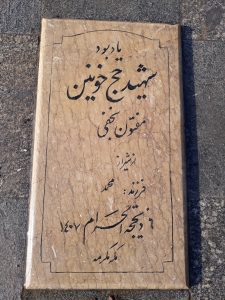 یادبود
شهید حج خونین
مفتون نجفی
از شیراز
فرزند: محمد
۶ ذیحجه الحرام ۱۴۰۷
مکه مکرمه